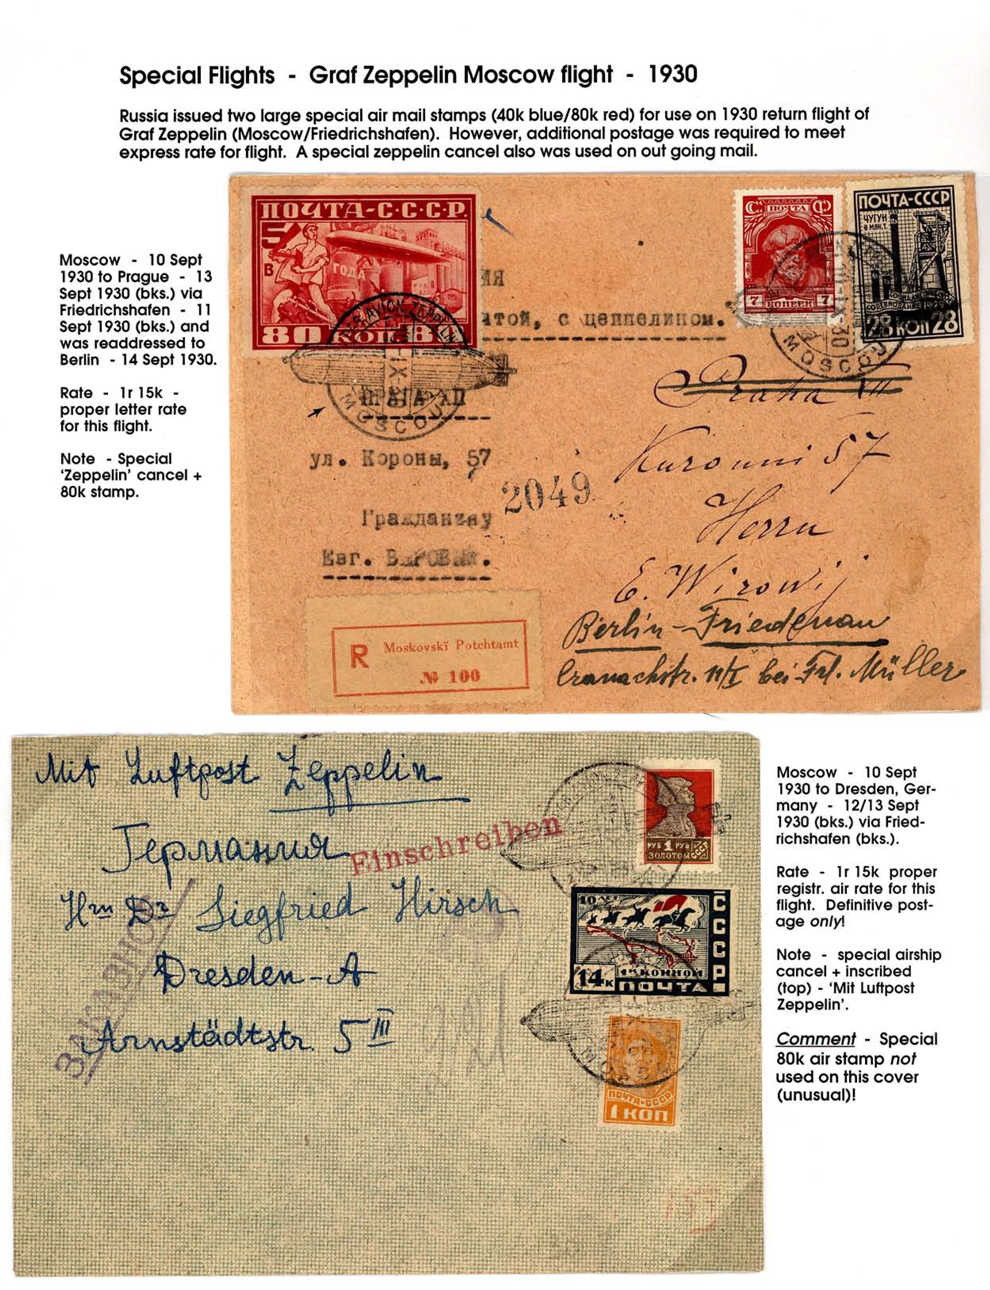 Special Flights - Graf Zeppelin Moscow flight - 1930
Russia issued two large special air mail stamps (40k blue/80k red) for use on 1930 return flight of
Graf Zeppelin (Moscow/Friedrichshafen). However, additional postage was required to meet
express rate for flight. A special zeppelin cancel also was used on out going mail.
Moscow - 10 Sept
1930 to Prague - 13
Sept 1930 (bks.) via
Friedrichshafen - 11
Sept 1930 (bks.) and
was readdressed to
Berlin - 14 Sept 1930.
Rate - 1r 15k -
proper letter rate
for this flight.
Note - Special
'Zeppelin' cancel +
80k stamp.
ПОЧТА-С.С.С.Р.
5
В
ГОДА
80 КОП 8
ПОЧТА
7 КОПЕЕК 7
ПОЧТА-СССР
ЧУГУН
8 МЛН. Т.
28 КОП 28
MOSCOU
MOSCOU
ИЯ
чтой, с цеппелином.
ПРАГА XII
ул. Короны, 57
2049
Гражданину
Евг.
Praha XII
Korunni 57
Herrn
E. Wirowij
Berlin-Friedenau
Cranachstr. 11/I bei Frl. Müller
R Moskovskĭ Potchtamt
№ 100
Mit Luftpost Zeppelin
Германия
Einschreiben
Hrn Dr Siegfried Hirsch
Dresden-A
Arnstädtstr. 5 III
ЗАКАЗНОЕ
РУБ 1 РУБ
ЗОЛОТОМ
СССР
10
1й КОННОЙ
14К ПОЧТА
СССР
ПОЧТА-СССР
1 КОП
Moscow - 10 Sept
1930 to Dresden, Ger-
many - 12/13 Sept
1930 (bks.) via Fried-
richshafen (bks.).
Rate - 1r 15k proper
registr. air rate for this
flight. Definitive post-
age only!
Note - special airship
cancel + inscribed
(top) - 'Mit Luftpost
Zeppelin'.
Comment - Special
80k air stamp not
used on this cover
(unusual)!